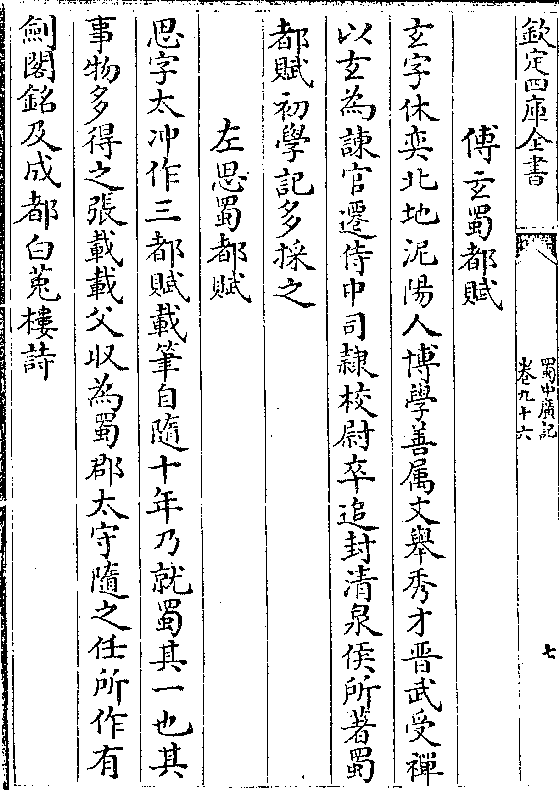 欽定四庫全書
蜀中廣記
卷九十六
七
傅玄蜀都賦
玄字休奕北地泥陽人博學善屬文舉秀才晋武受禪
以玄為諫官遷侍中司隸校尉卒追封清泉侯所著蜀
都賦初學記多採之
左思蜀都賦
思字太冲作三都賦載筆自隨十年乃就蜀其一也其
事物多得之張載載父收為蜀郡太守隨之任所作有
劍閣銘及成都白菟樓詩